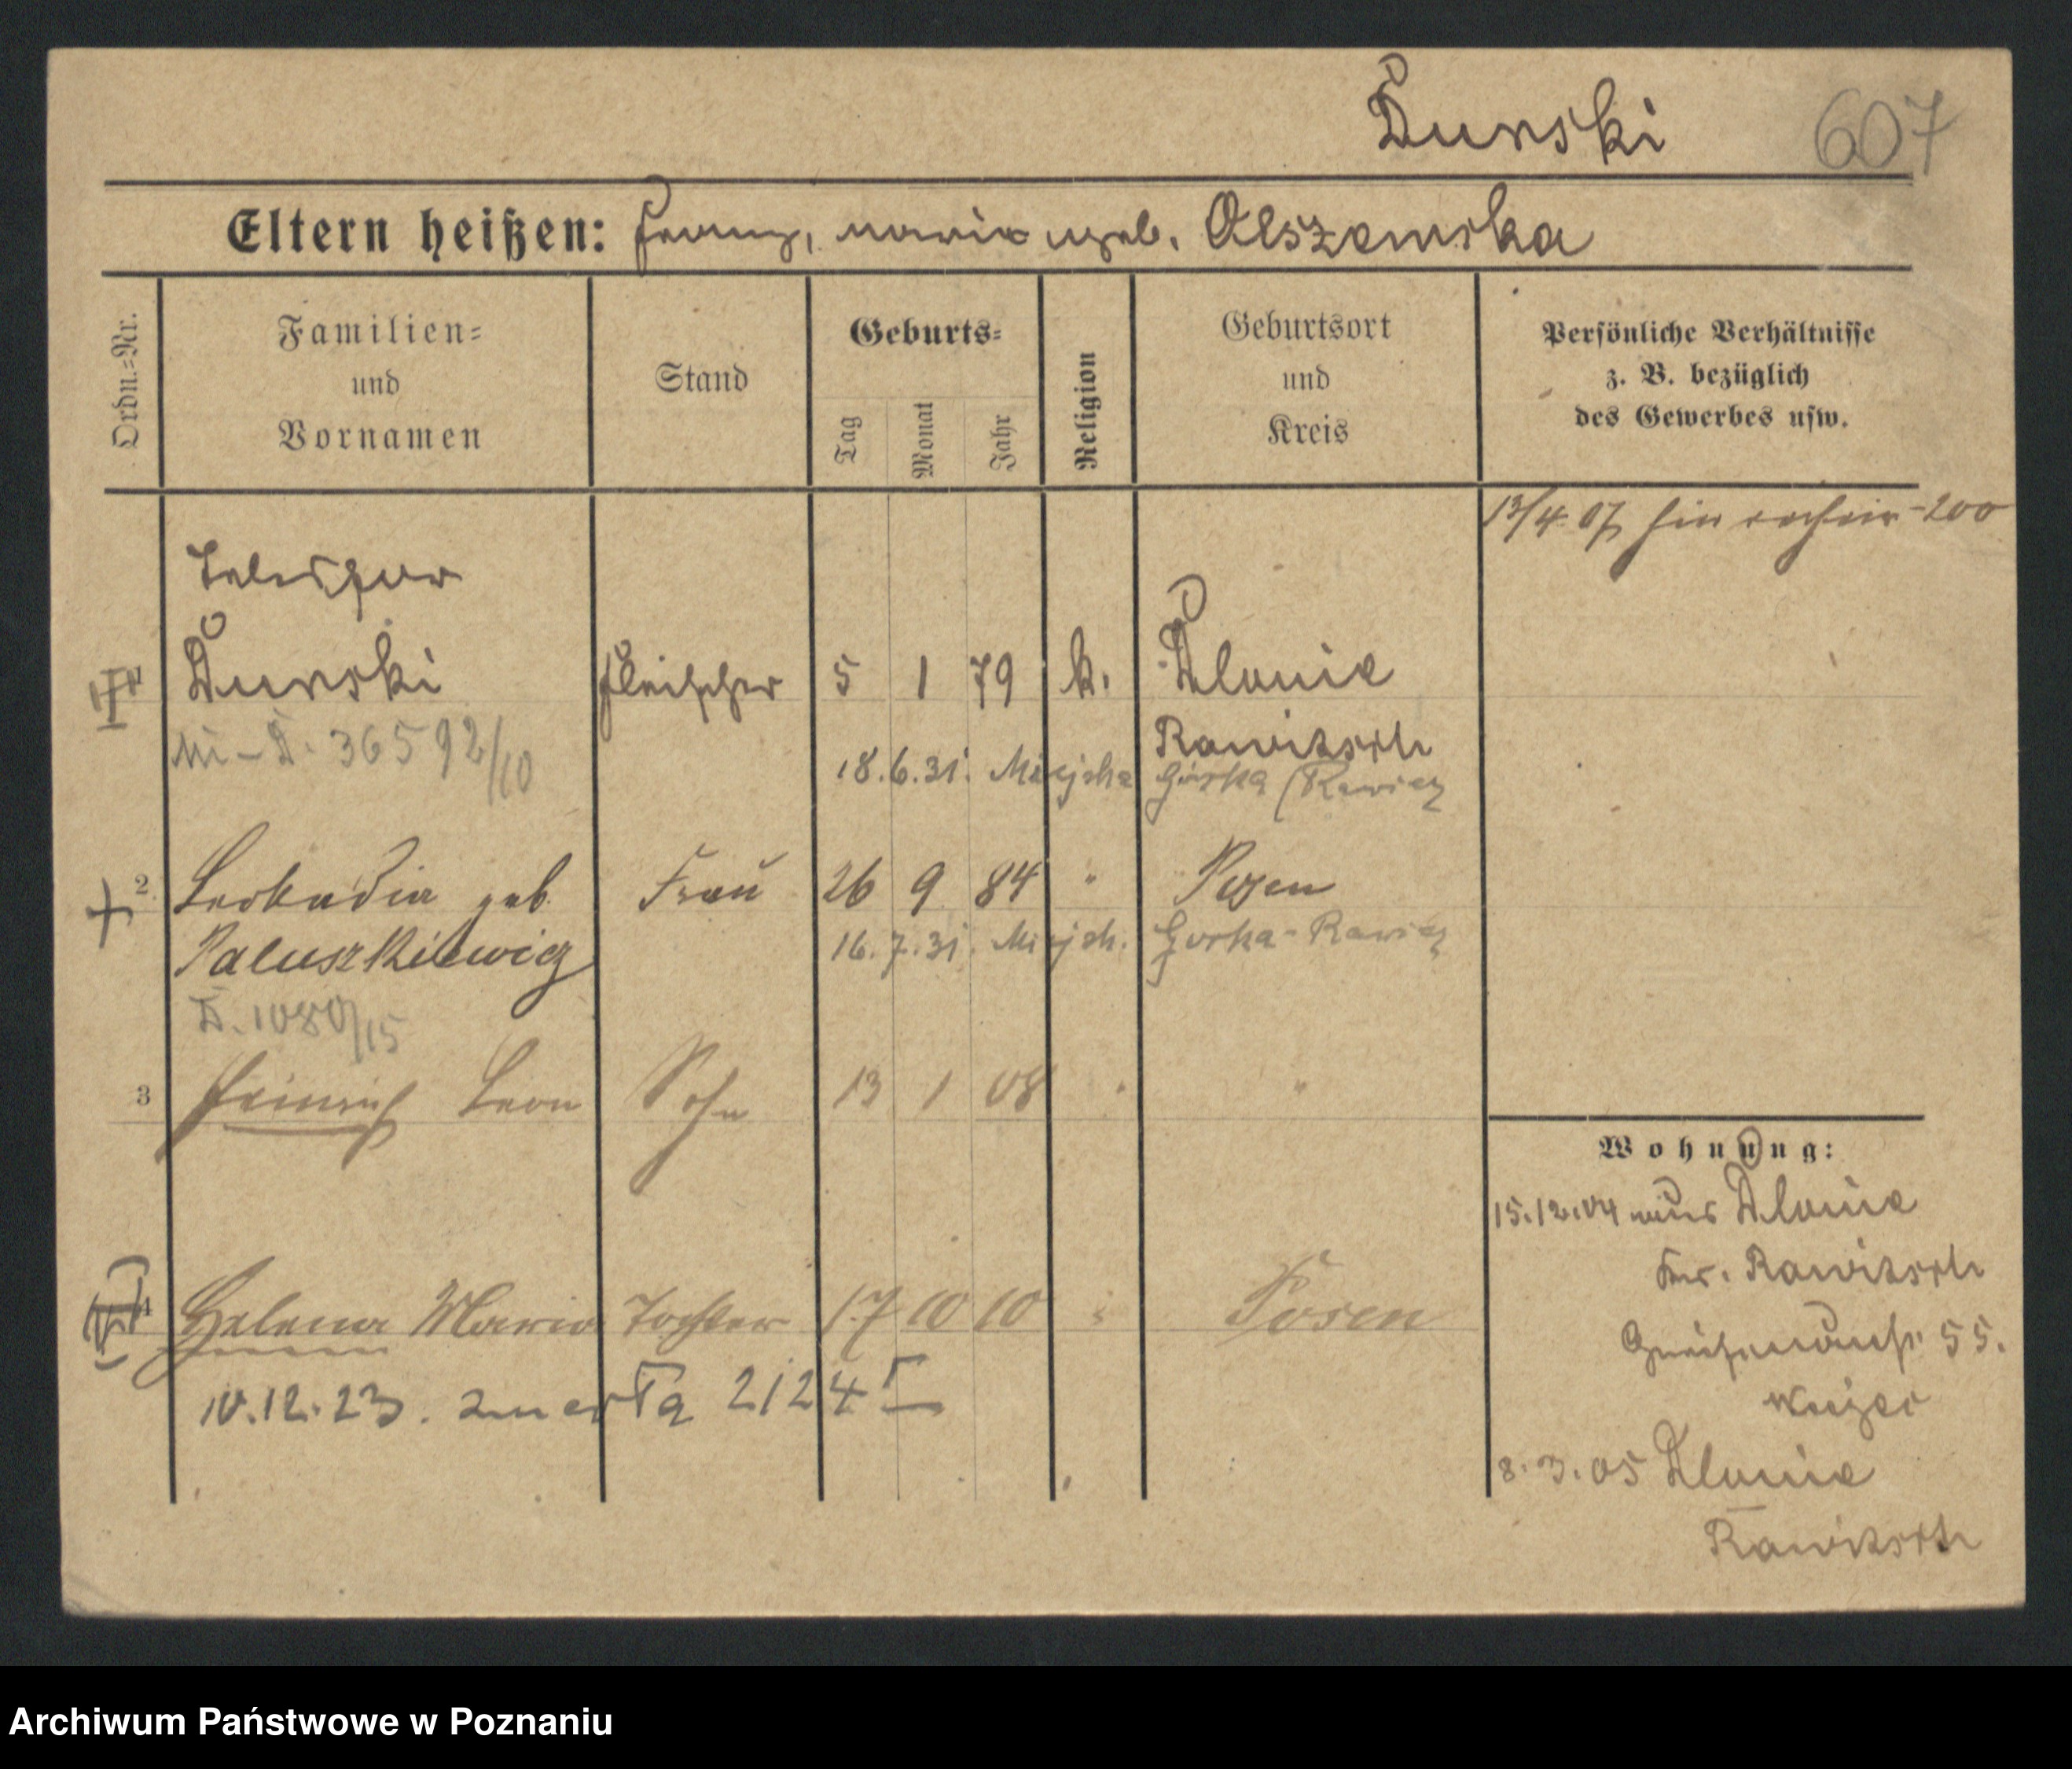 Durski 607
Eltern heißen: Franz, Maria geb. Olszewska
Ordn.=Nr.
Familien=
und
Vornamen
Stand
Geburts=
Tag
Monat
Jahr
Religion
Geburtsort
und
Kreis
Persönliche Verhältnisse
z. B. bezüglich
des Gewerbes usw.
13/4 07
200
Telesfor
Durski Fleischer 5 1 79 k. Dlonie
Rawitsch
36592/10
18.6.31. Miejska Górka (Rawicz
2 Leokadia geb. Frau 26 9 84 " Posen
Paluszkiewicz 16.7.31. Miejsk. Gorka-Rawicz
D. 1080/15
3 Heinrich Leon Sohn 13 1 08 " "
4 Helena Maria Tochter 17 10 10 " Posen
10.12.23. 2124 I
Wohnung:
15.12.04 aus Dlonie
Kr. Rawitsch
55.
8.3.05 Dlonie
Rawitsch
Archiwum Państwowe w Poznaniu